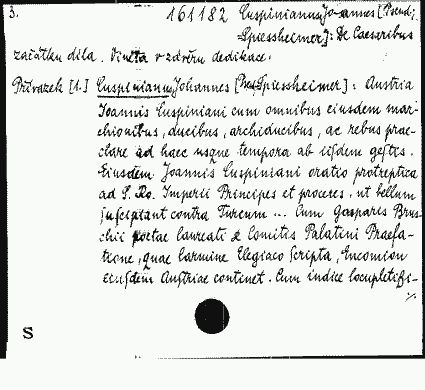 3.
161182 Cuspinianus Joannes [Pseud.
Spiessheimer]: De Caesaribus
začátku díla. Viněta v závěru dedikace.
Přívazek [1.] Cuspinianus Johannes [Pseud. Spiessheimer]: Austria
Joannis Cuspiniani cum omnibus eiusdem mar-
chionibus, ducibus, archiducibus, ac rebus prae-
clare ad haec usque tempora ab iisdem gestis.
Eiusdem Joannis Cuspiniani oratio protreptica
ad S. Ro. Imperii Principes et proceres, ut bellum
suscipiant contra Turcum ... Cum Gasparis Brus-
chii poetae laureati & Comitis Palatini Praefa-
tione, quae Carmine Elegiaco scripta, Encomion
eiusdem Austriae continet. Cum indice locupletissi-
%
S